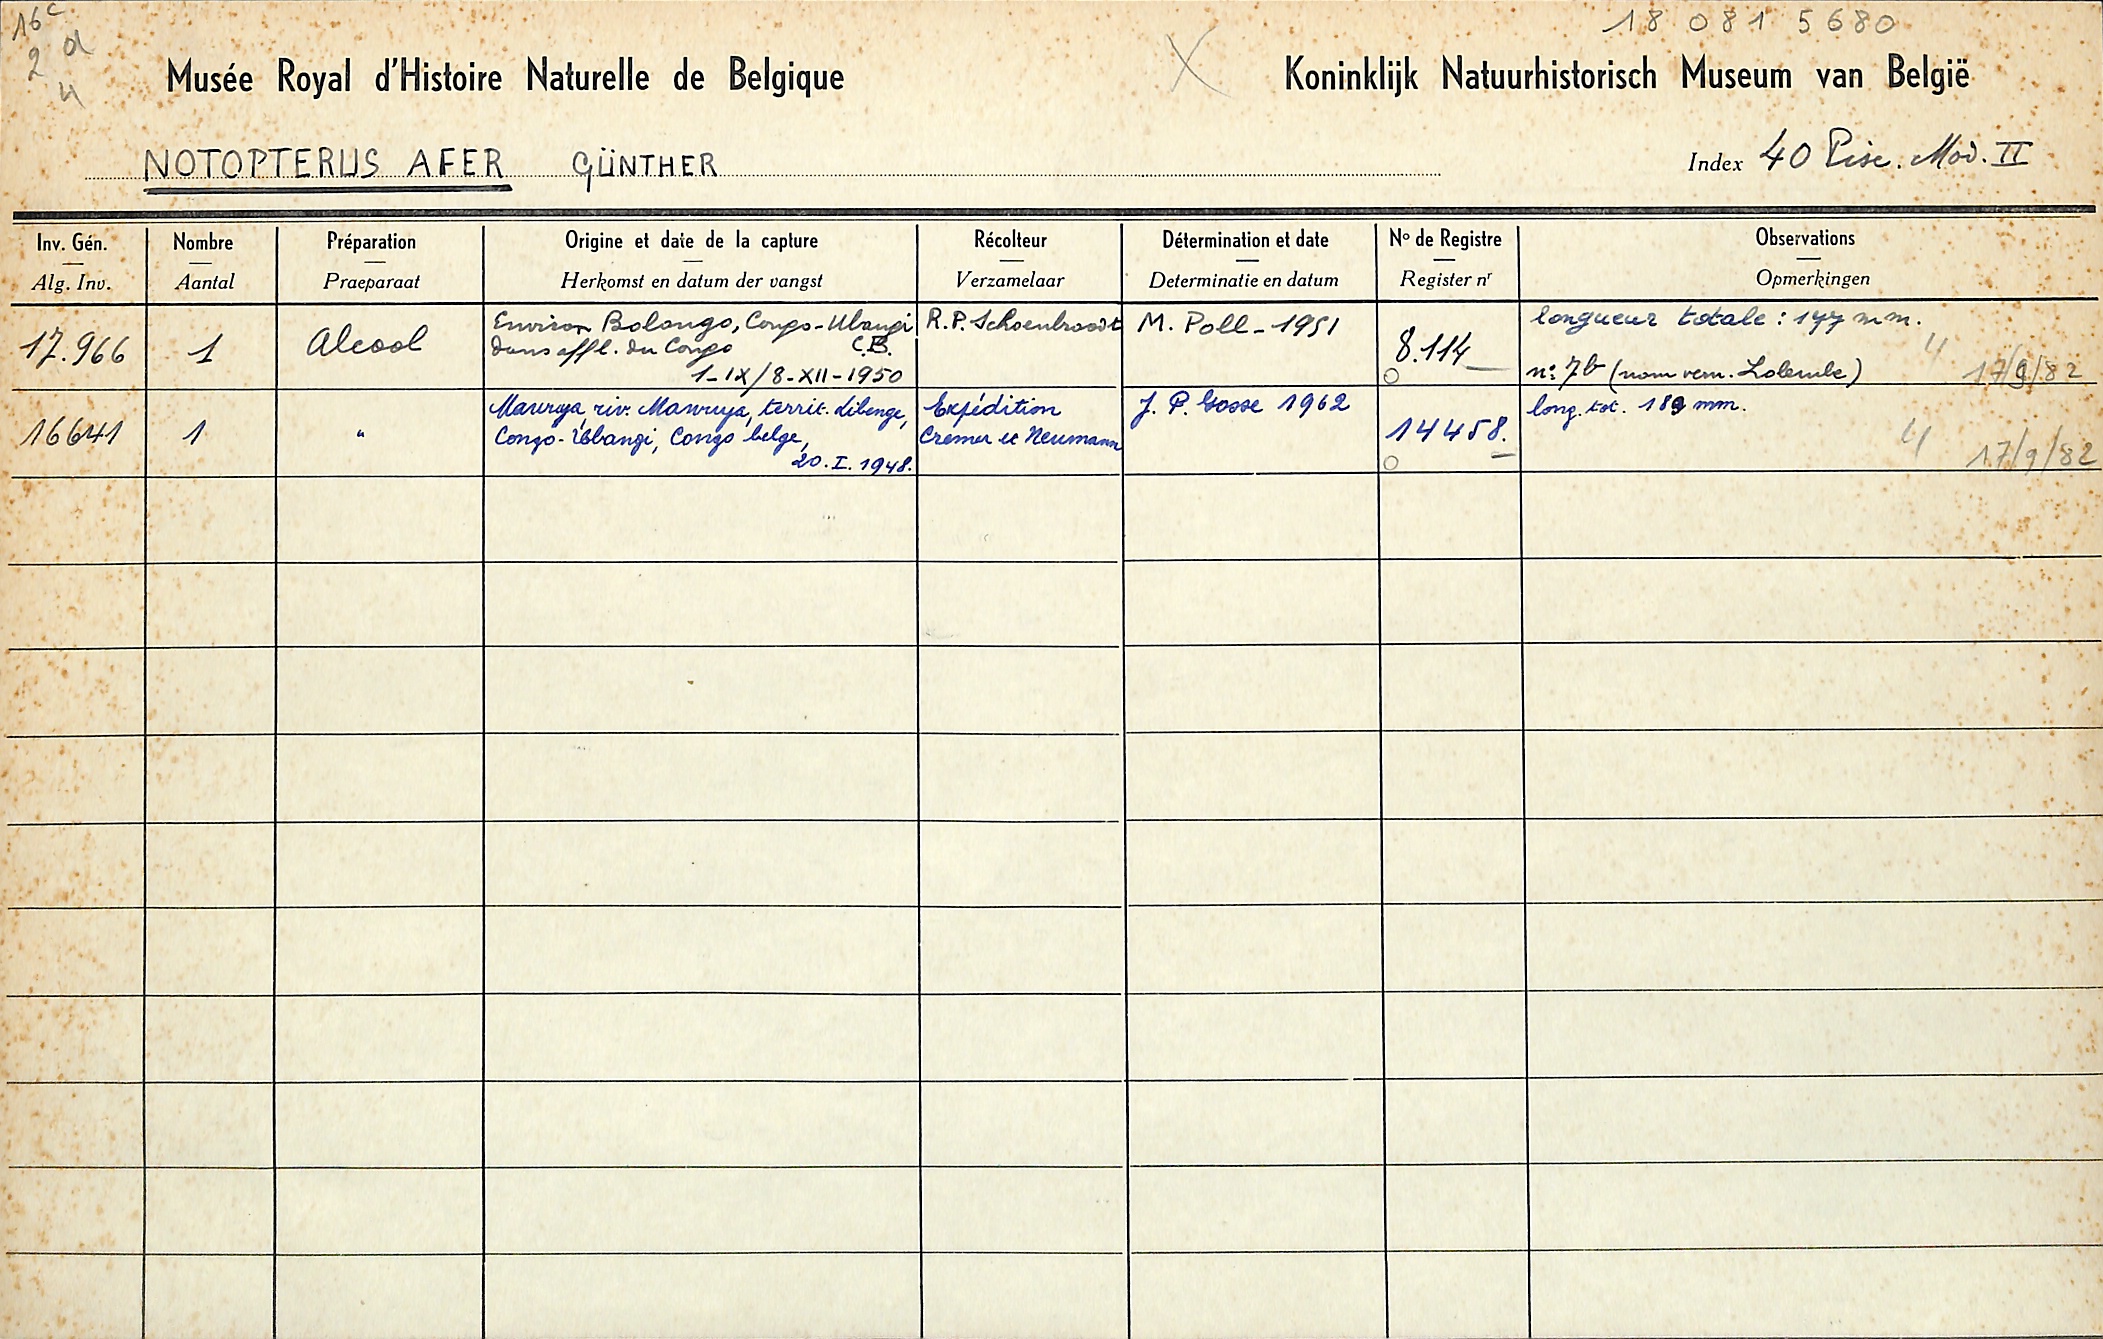 16c
2 d
4
18 081 5680
X
Musée Royal d'Histoire Naturelle de Belgique
Koninklijk Natuurhistorisch Museum van België
NOTOPTERUS AFER GÜNTHER
Index 40 Pisc. Mod. II
Inv. Gén. Nombre Préparation Origine et date de la capture Récolteur Détermination et date No de Registre Observations
Alg. Inv. Aantal Praeparaat Herkomst en datum der vangst Verzamelaar Determinatie en datum Register nr Opmerkingen
17.966
1
Alcool
Environ Bolongo, Congo-Ubangi
dans affl. du Congo C.B.
1-IX/8-XII-1950
R.P. Schoenbroodt
M. Poll - 1951
8.114
longueur totale : 177 mm.
n° 7b (nom vern. Lolembe)
4
17/9/82
16641
1
"
Mawuya, riv. Mawuya, territ. Libenge,
Congo-Ubangi, Congo belge,
20.I.1948.
Expédition
Cremer et Neumann
J. P. Gosse 1962
14458.
long. tot. 189 mm.
4
17/9/82